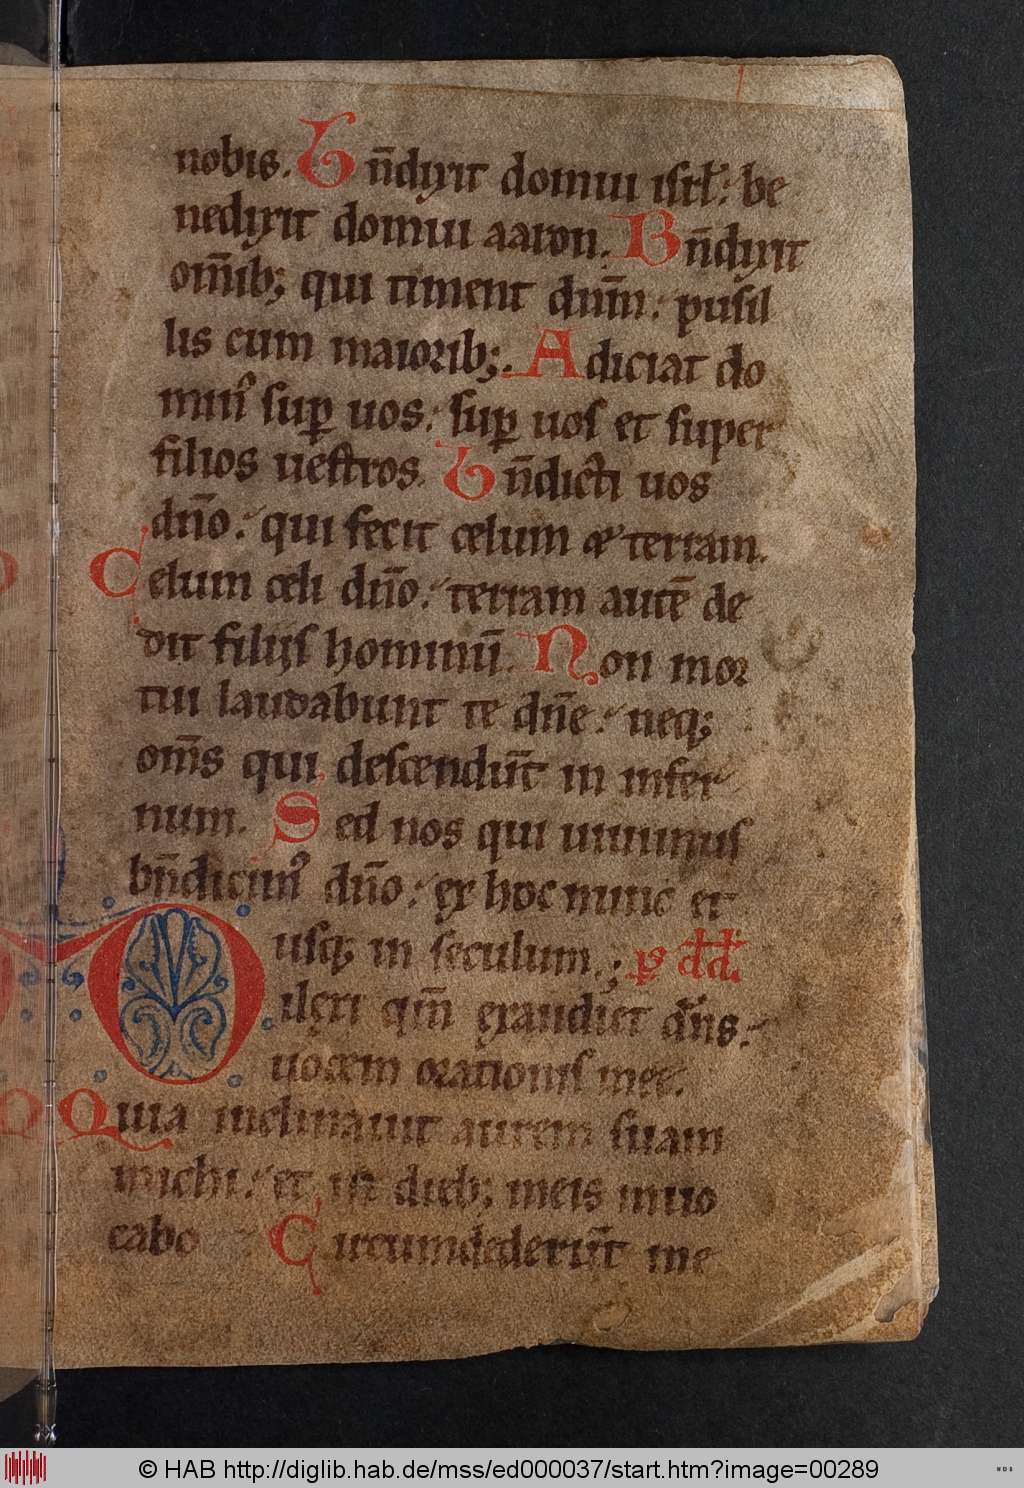 nobis. Bn̄dixit domui isrl̄: be
nedixit domui aaron. Bn̄dixit
om̄ib; qui timent dnm̄: pusil
lis cum maiorib;. Adiciat do
min⁹ suꝑ uos: suꝑ uos et super
filios uestros. Bn̄dicti uos
dn̄o: qui fecit celum et terram.
Celum celi dn̄o: terram autē de
dit filijs hominū. Non mor
tui laudabunt te dn̄e: neq;
om̄s qui descendūt in infer
num. Sed nos qui uiuimus
bn̄dicim⁹ dn̄o: ex hoc nunc et
usq; in seculum.; ps dd
Dilexi qm̄ exaudiet dn̄s:
uocem orationis mee.
Quia inclinauit aurem suam
michi: et in dieb; meis inuo
cabo Circumdederūt me
© HAB http://diglib.hab.de/mss/ed000037/start.htm?image=00289